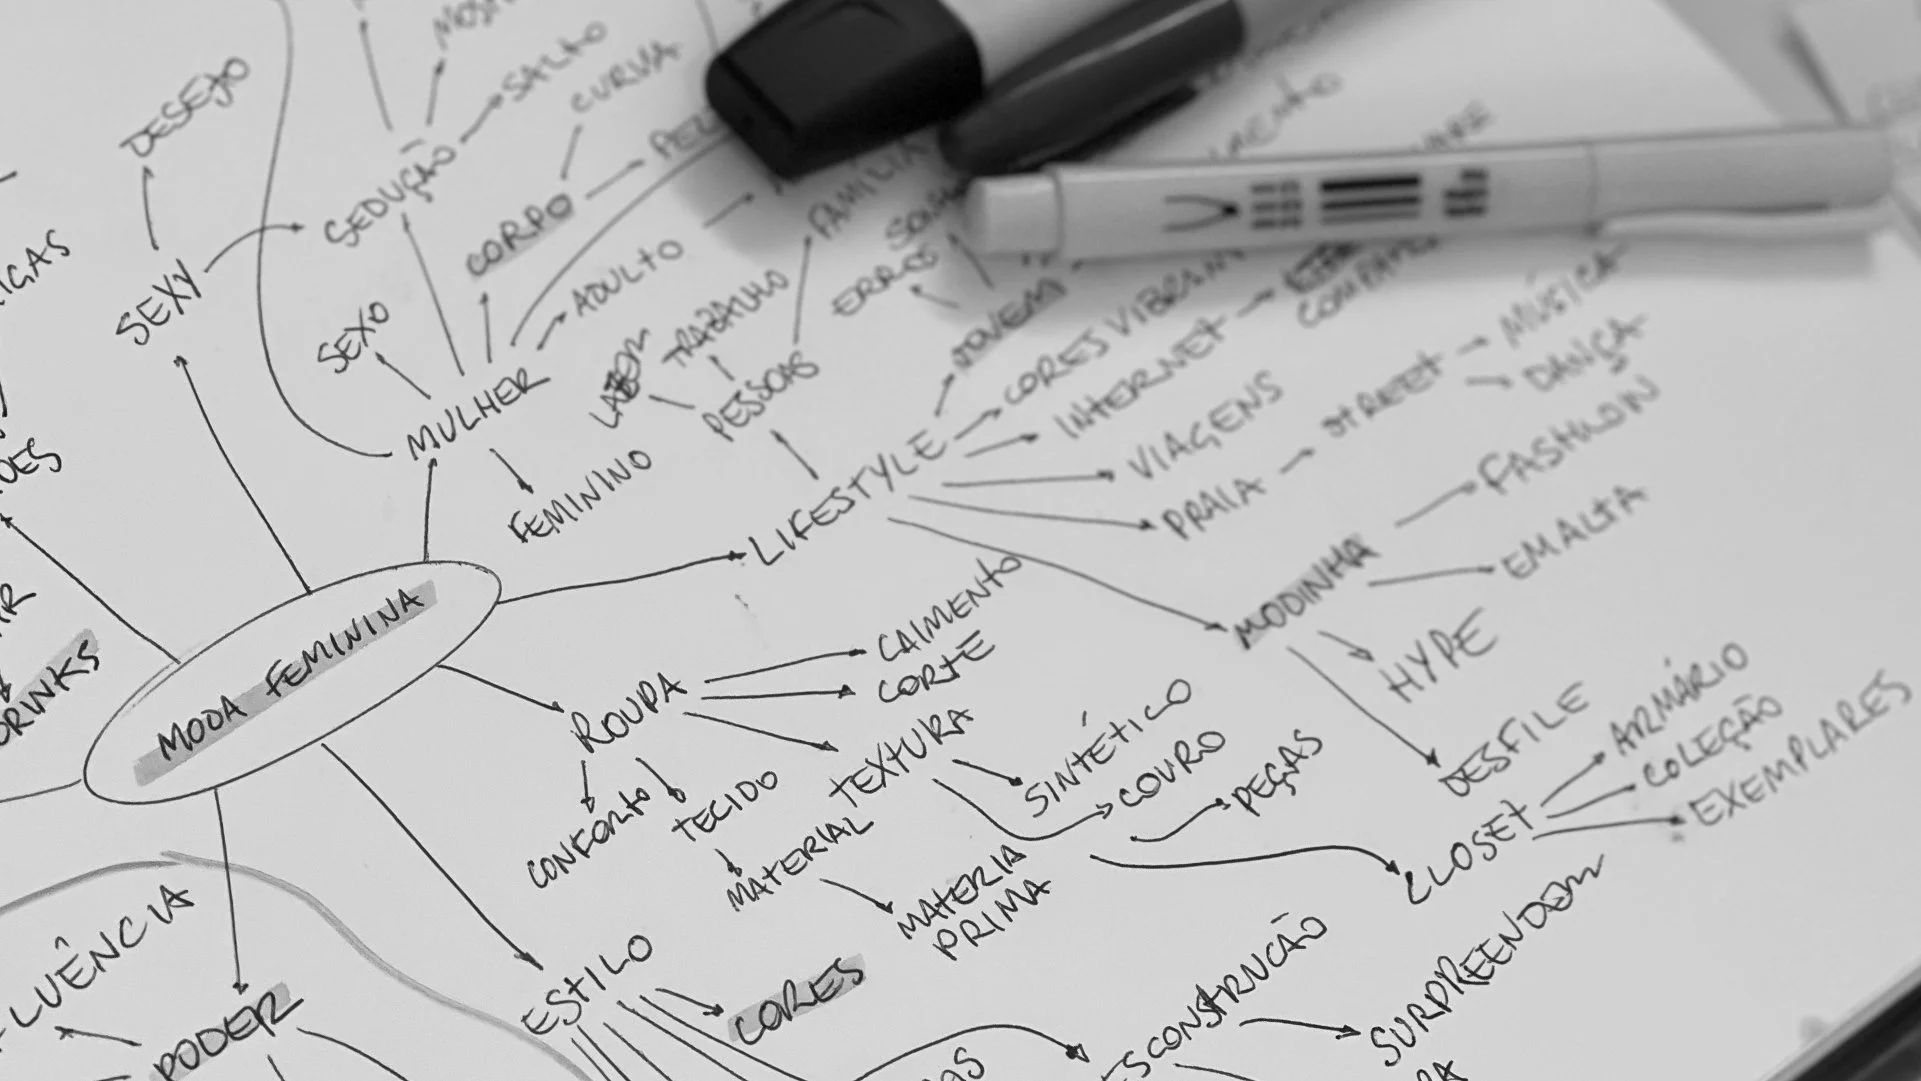 DESEJO
SALTO
CURVA
SEDUÇÃO
SEXY
CORPO
SEXO
ADULTO
FAMÍLIA
TRABALHO
LAZER
PESSOAS
ERROS
JOVEM
MULHER
FEMININO
LIFESTYLE
INTERNET
VIAGENS
PRAIA
STREET
MÚSICA
DANÇA
MODINHA
FASHION
EM ALTA
HYPE
DESFILE
MODA FEMININA
DRINKS
ROUPA
CAIMENTO
CORTE
TEXTURA
SINTÉTICO
COURO
PEÇAS
CONFORTO
TECIDO
MATERIAL
MATERIA
PRIMA
CLOSET
ARMÁRIO
COLEÇÃO
EXEMPLARES
ESTILO
CORES
PODER
FLUÊNCIA
ESCONSTRUÇÃO
SURPREENDER